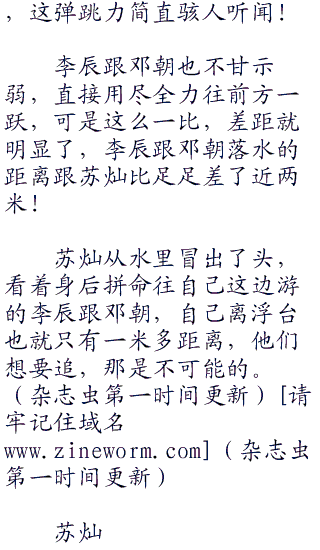 ，这弹跳力简直骇人听闻！
李辰跟邓朝也不甘示
弱，直接用尽全力往前方一
跃，可是这么一比，差距就
明显了，李辰跟邓朝落水的
距离跟苏灿比足足差了近两
米！
苏灿从水里冒出了头，
看着身后拼命往自己这边游
的李辰跟邓朝，自己离浮台
也就只有一米多距离，他们
想要追，那是不可能的。
（杂志虫第一时间更新）[请
牢记住域名
www.zineworm.com]（杂志虫
第一时间更新）
苏灿